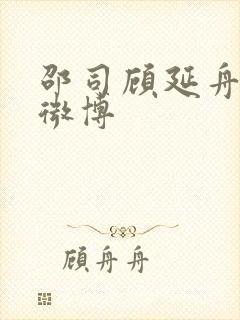 邵司顾延舟
微博
顾舟舟